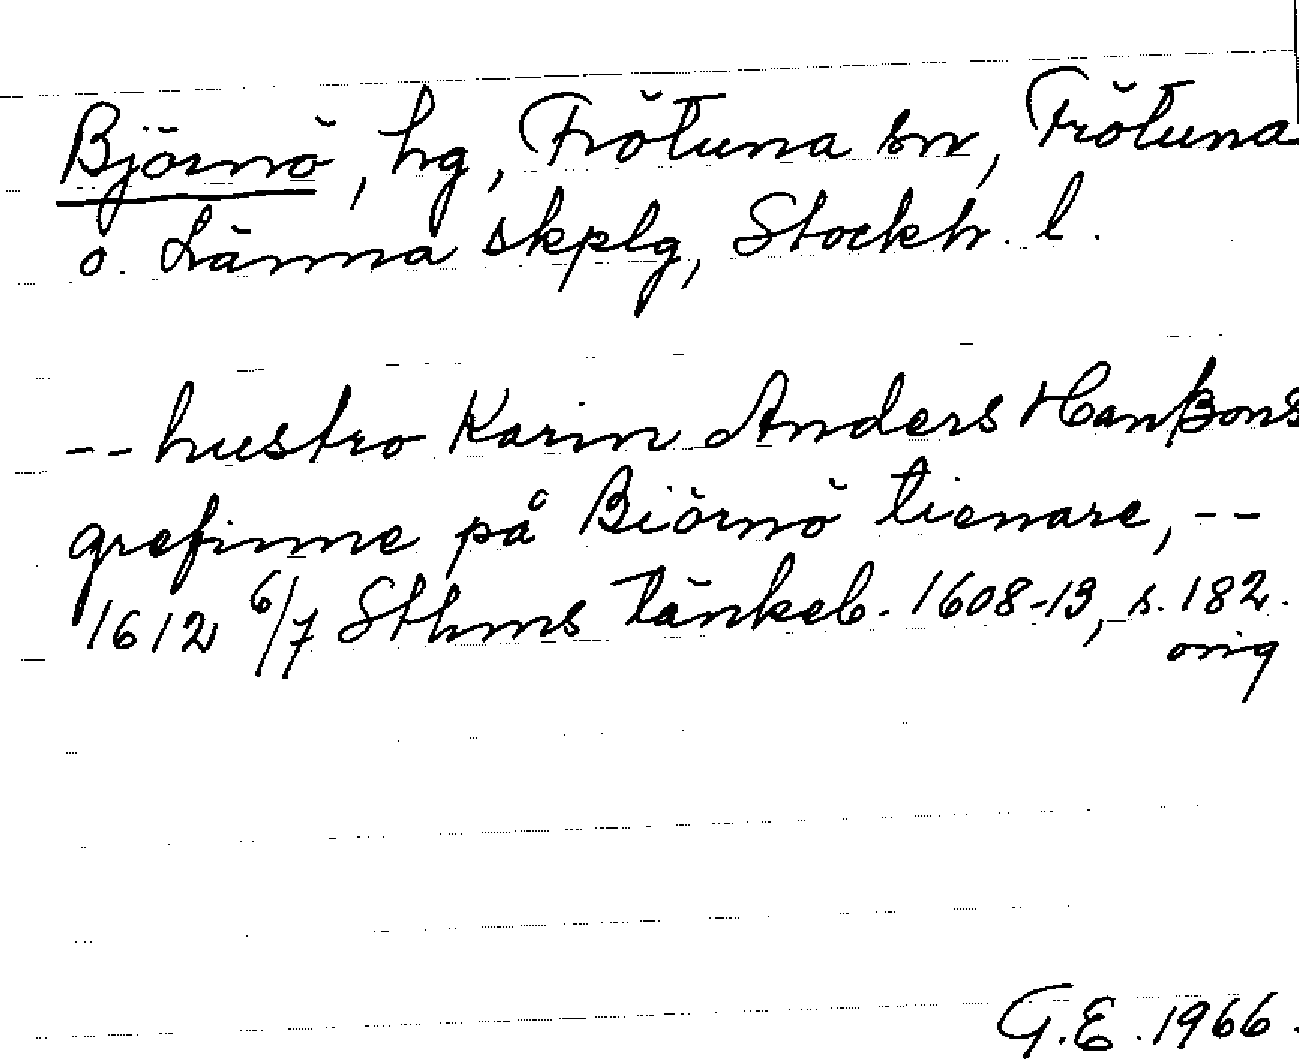 Björnö, hg, Frötuna sn, Frötuna
o. Länna skplg, Stockh. l.
-- hustro Karin Anders Hanßons
grefinne på Biörnö tienare, --
1612 6/7 Sthms tänkeb. 1608-13, s. 182.
orig
G.E. 1966.